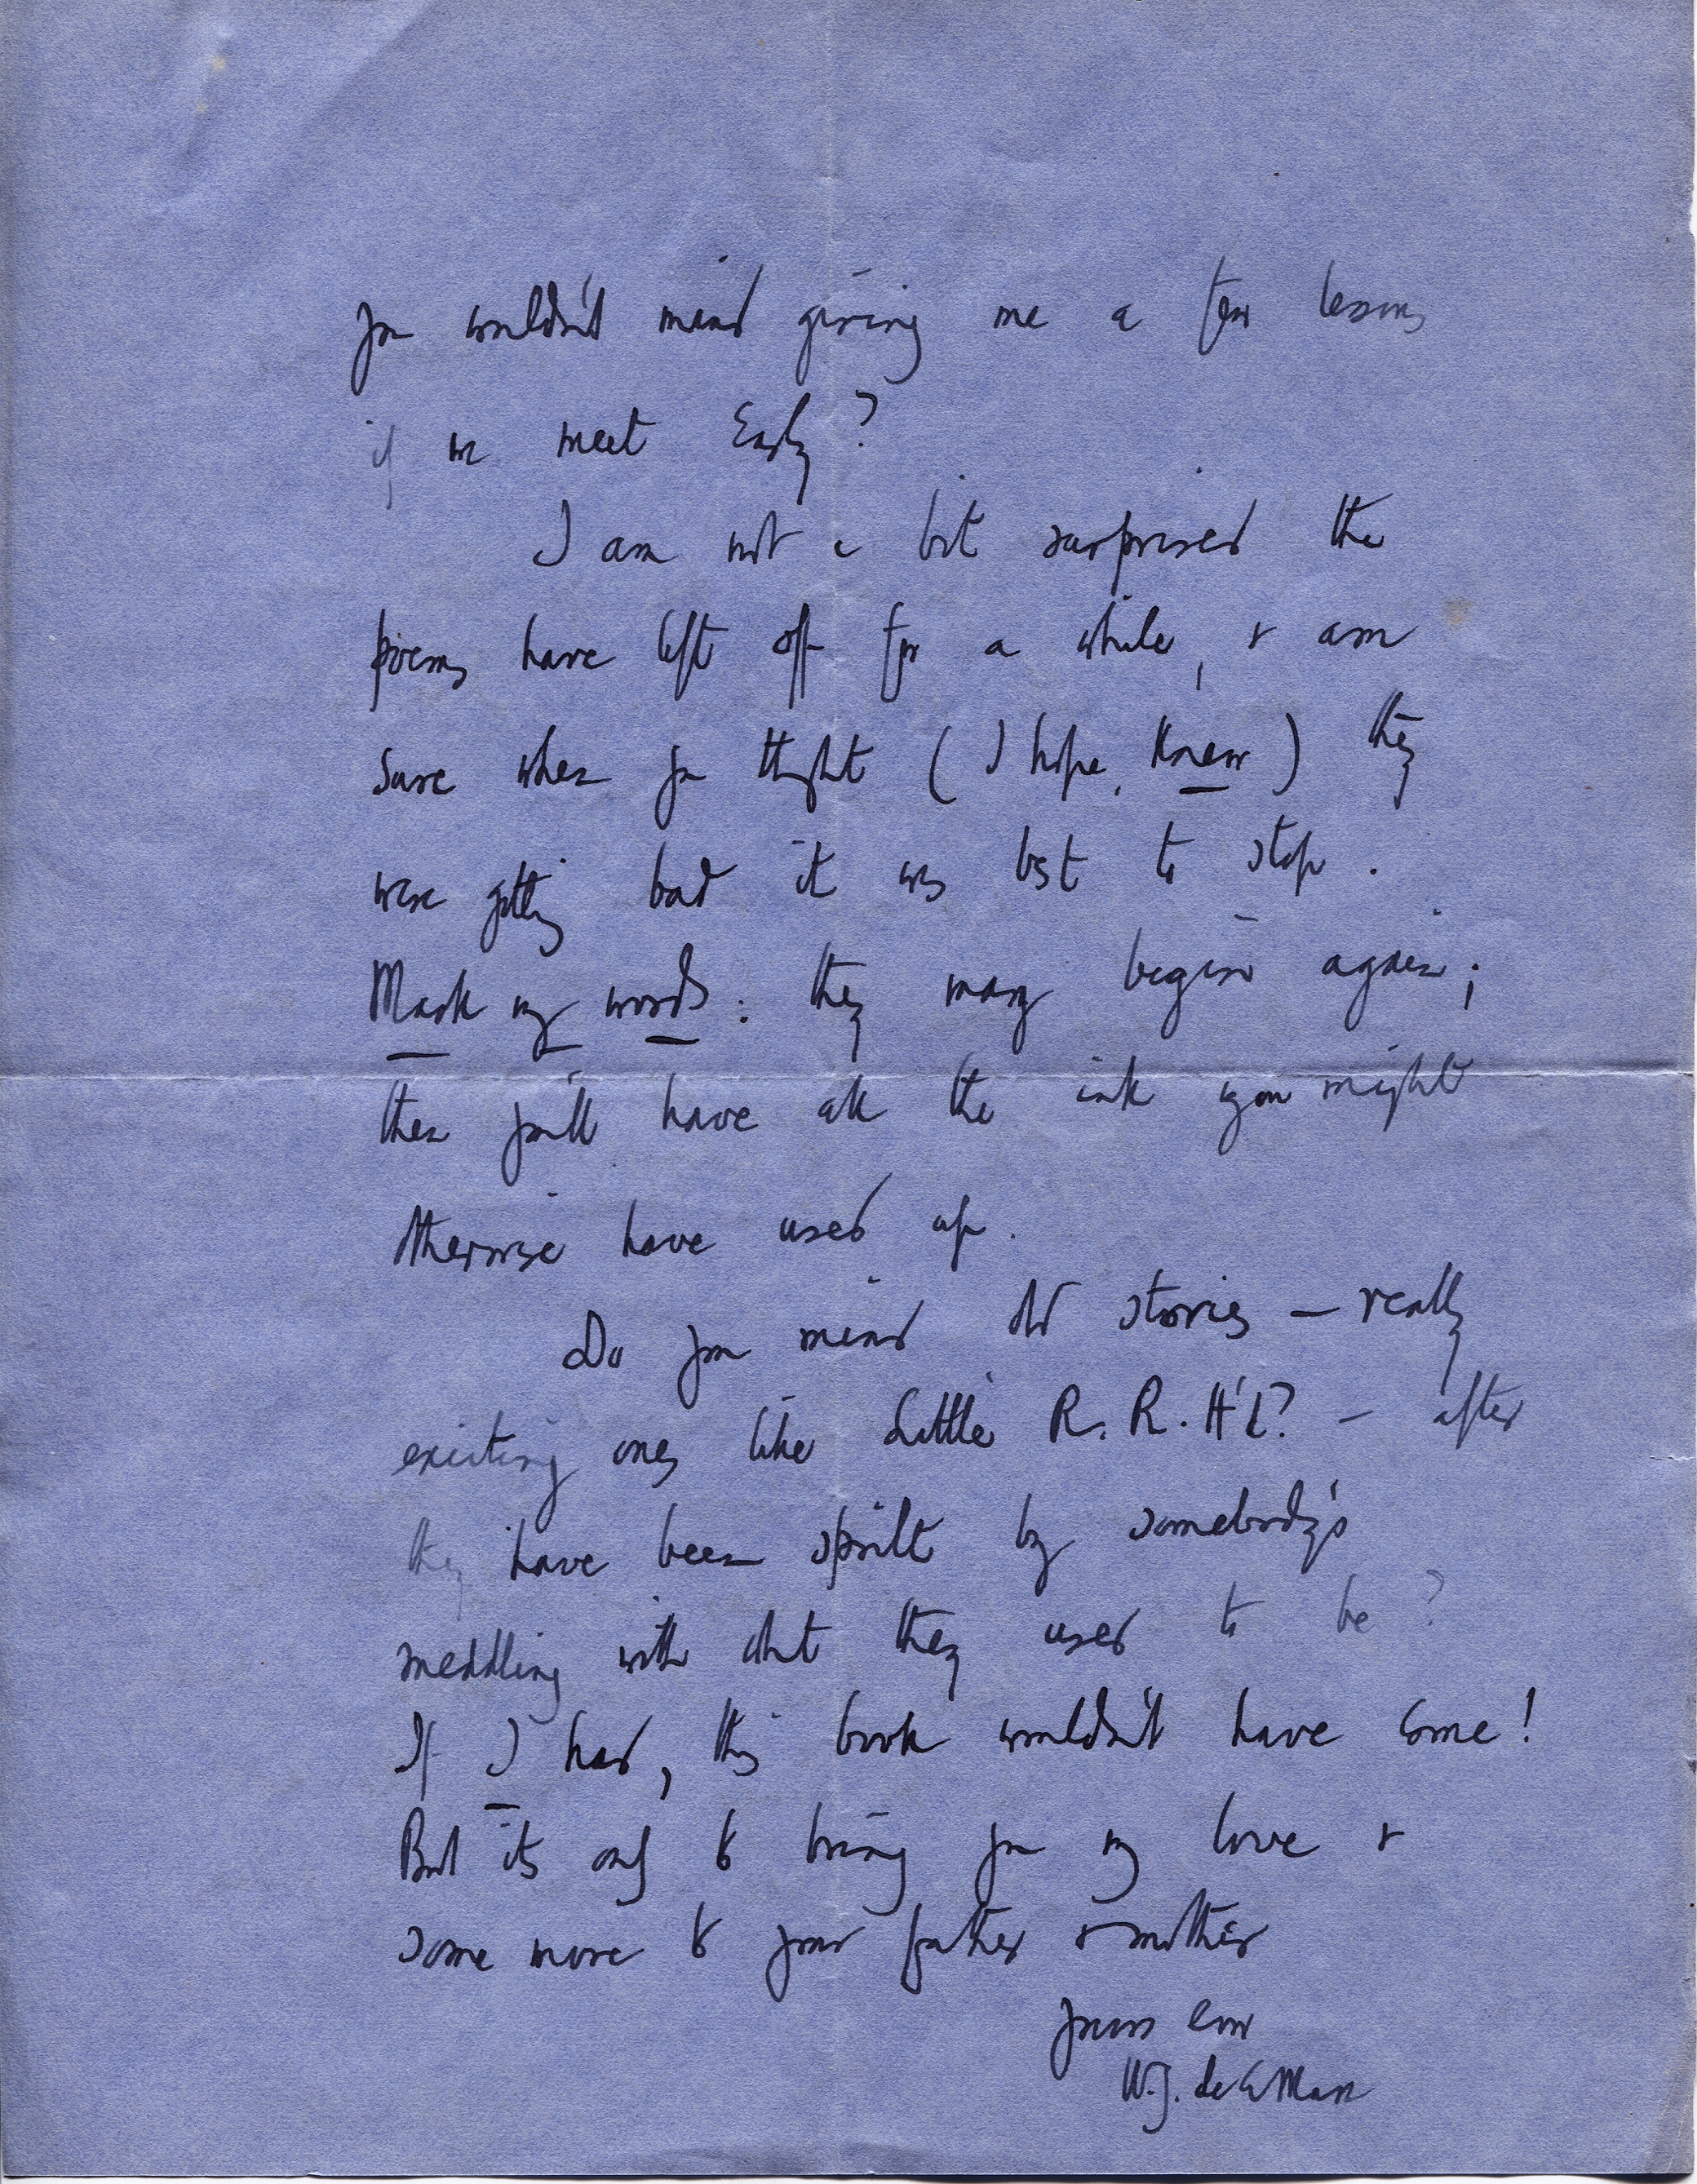 you wouldn't mind giving me a few lessons
if we meet Early?
I am not a bit surprised the
poems have left off for a while, & am
sure when you thought (I hope, knew) they
were getting bad it was best to stop.
Mark my words: they may begin again;
then you'll have all the ink you might
otherwise have used up.
Do you mind old stories — really
exciting ones like Little R. R. H'd? — after
they have been spoilt by somebody's
meddling with what they used to be?
If I had, this book wouldn't have come!
But its only to bring you my love &
some more to your father & mother
Yours ever
W.J. de la Mare